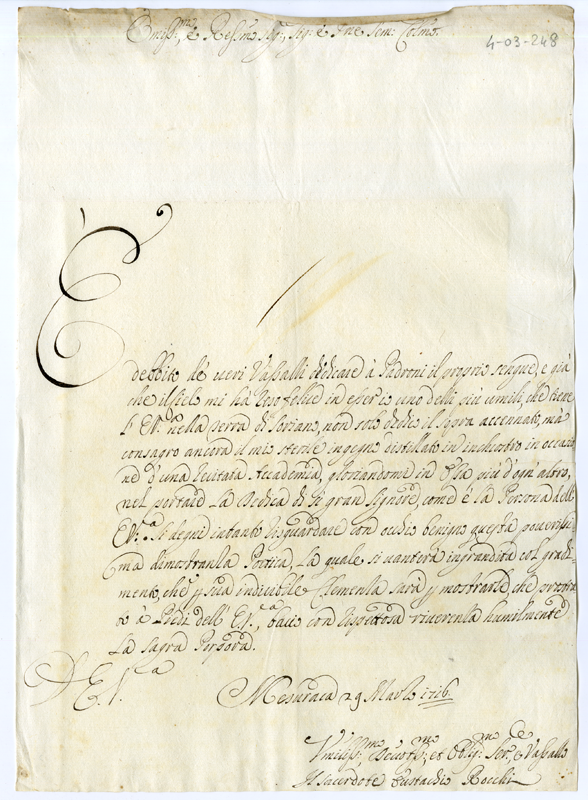 Emiss:mo e Rev:mo Sig:r, Sig:r e Pne Sem: Colmo.
4-03-248
È debbito de veri Vassalli dedicare à Padroni il proprio sengue, e già
che il Cielo mi ha reso felice in esser io uno delli più umili, che tiene
l'E.V. nella terra di Soriano, non solo dedico il sopra accennato, mà
consagro ancora il mio sterile ingegno distillato in inchiostro in occasio-
ne d'una Accademia, gloriandomi in essa più d'ogni altro,
nel portare la Dedica di sì gran Signore, come è la Persona dell'
E.V.a Si degni intanto risguardare con occhio benigno questa poverissi-
ma dimostranza Poetica, la quale si vanterà ingrandita col gradi-
mento, che p sua indicibile Clemenza sarà p mostrarle, che prostra-
to à Piedi dell'E.V.a, bacio con rispettosa riverenza humilmente
la sagra Porpora.
D'E.V.a
Mesuraca 29 Marzo 1716.
Vmiliss:mo Devotis:mo, et Obliga:mo Ser:e e Vassallo
Il sacerdote Eustachio Rocchi